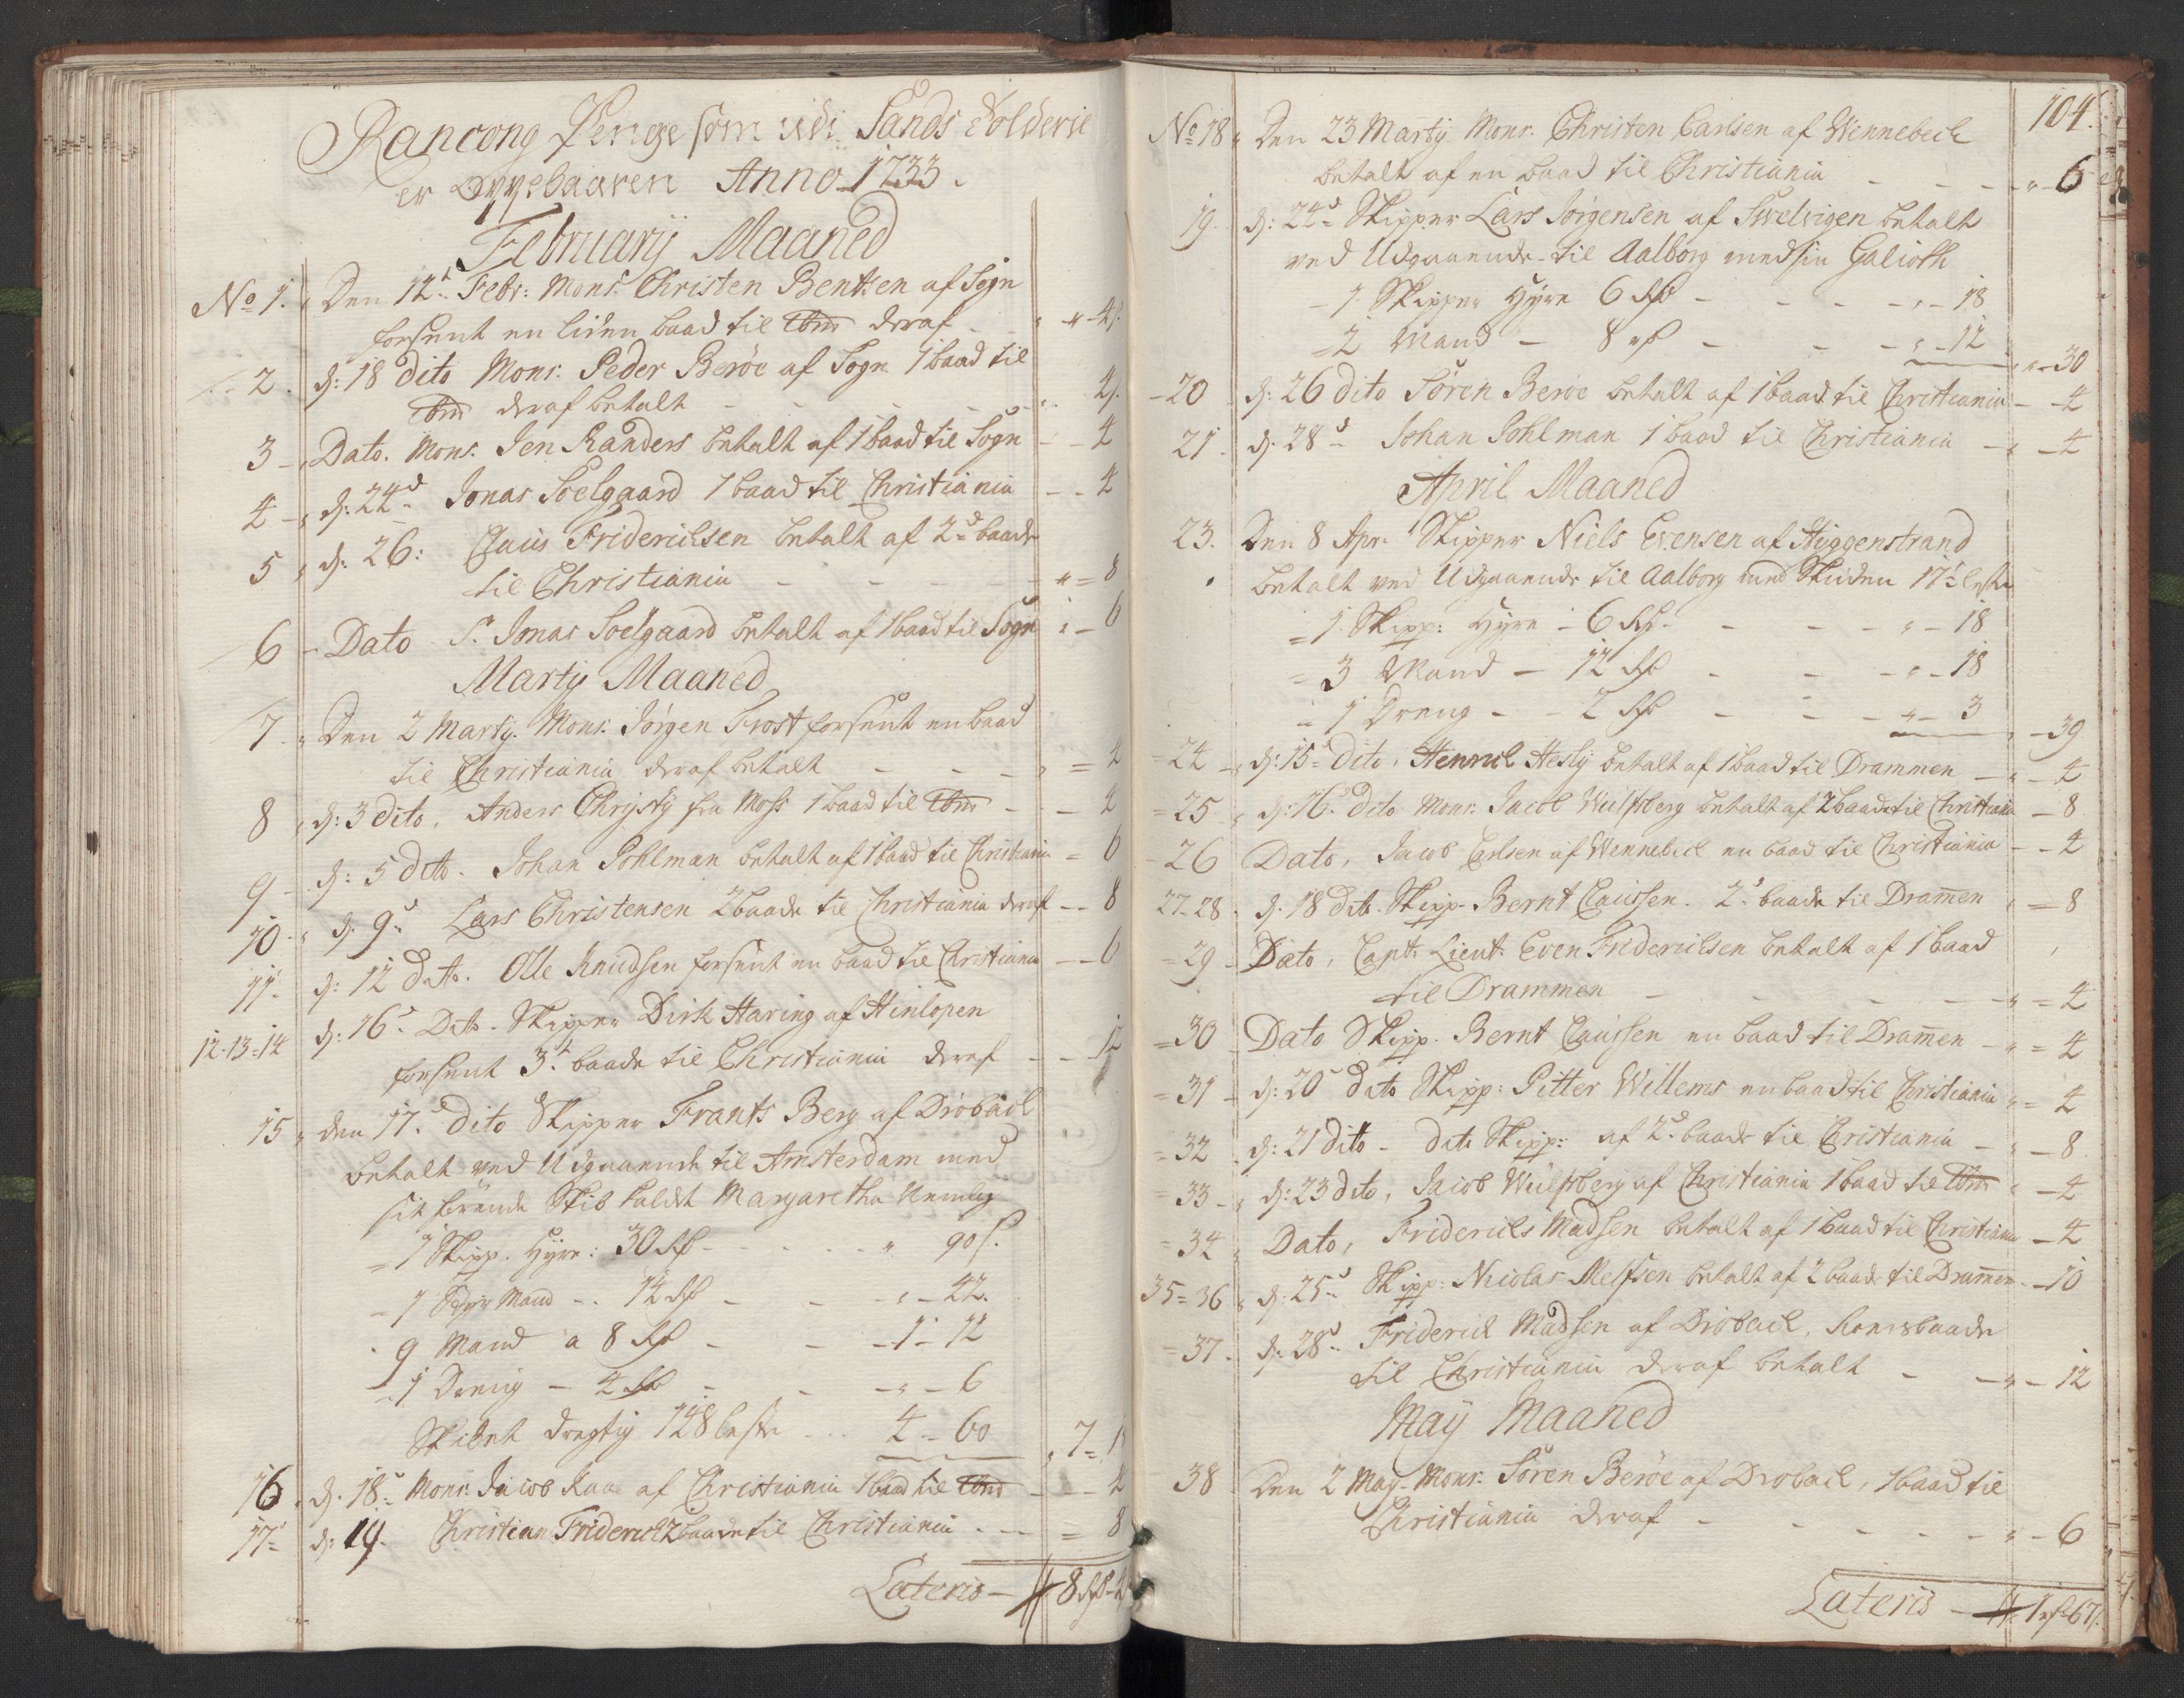 Rancong Penge som udi Sands Tolderie
er Oppebaaren Anno 1733.
Februarij Maaned
No 1. Den 12t Febr: Mons: Christen Bentsen af Sogn
forsent en liden baad til Ibm deraf - 4 s.
2. d: 18 dito Mons: Peder Beröe af Sogn 1 baad til
Ibm deraf betalt - 4 s.
3 Dato. Mons: Jen Randers betalt af 1 baad til Sogn - 4
4 d: 24d Jonas Soelgaard 1 baad til Christiania - 4
5 d: 26: Claus Friderichsen betalt af 2d baade
til Christiania - 8
6 Dato S. Jonas Soelgaard betalt af 1 baad til Sogn - 6
Martij Maaned
7 Den 2 Martij. Mons: Jörgen Frost forsent en baad
til Christiania deraf betalt - 4
8 d: 3 dito, Anders Chrÿstÿ fra Moss 1 baad til Ibm - 4
9 d: 5 dito. Johan Pohlman betalt af 1 baad til Christiania = 6
10 d. 9d Lars Christensen 2 baade til Christiania deraf - 8
11 d: 12 dito. Olle Knudsen forsent en baad til Christiania - 6
12-13-14 d: 16d Dito. Skipper Dirk Haring af Hinlopen
forsent 3d baade til Christiania deraf - 12
15 den 17d dito Skipper Frants Berg af Dröbach
betalt ved Udgaaende til Amsterdam med
sit förende Skib kaldet Margaretha Nemlig
1 Skipp. Hÿre: 30 Rd - 90 s.
1 Styr Mand - 14 Rd - 42.
9 Mand a 8 Rd - 1 - 12
1 Dreng - 4 Rd - 6
Skibet dregtig 148 lester - 4 - 60
7 = 18
16. d. 18d Mons: Jacob Raae af Christiania 1 baad til Ibm - 4
17 d: 19. Christian Friderich 2 baade til Christiania - = 8
Lateris - 8 Rd
104.
No 18 Den 23 Martij Mons. Christen Carlsen af Wennebech
betalt af en baad til Christiania - 6
19. d: 24d Skipper Lars Jörgensen af Swelvigen betalt
ved Udgaaende til Aalborg med sin Galioth
1 Skipper Hÿre 6 Rd - 18
2 Mand - 8 Rd - 12
30
20 d: 26 dito Sören Beröe betalt af 1 baad til Christiania - 4
21. d. 28d Johan Pohlman 1 baad til Christiania - 4
April Maaned
23. Den 8 Apr: Skipper Niels Evensen af Huggenstrand
betalt ved Udgaaende til Aalborg med Skuden 17½ lester
1 Skipp: Hÿre - 6 Rd - 18
3 Mand - 12 Rd - 18
1 Dreng - 2 Rd - 3
39
24 d: 15 dito, Henrich Heslÿ betalt af 1 baad til Drammen - 4
25 d: 16. dito Mons. Jacob Wulfsberg betalt af 2 baade til Christiania - 8
26 Dato, Jacob Carlsen af Wennebech en baad til Christiania - 4
27-28. d. 18 dito. Skipp. Bernt Claussen. 2d baade til Dram̄en = 8
29 Dato, Capt. Lieut. Even Friderichsen betalt af 1 baad
til Drammen = 4
30 Dato Skipp. Bernt Claussen en baad til Dram̄en = 4
31 d: 20 dato Skipp: Pitter Willems en baad til Christiania = 4
32. d: 21 dito - dato Skipp: af 2d baade til Christiania - 8
33 d: 23 dito, Jacob Wulfsberg af Christiania 1 baad til Ibm - 4
34 Dato, Friderichs Madsen betalt af 1 baad til Christiania - 4
35=36 d. 25d Skipp: Nicolas Melfsen betalt af 2 baade til Dram̄en - 10
37. d: 28d Friderich Madsen af Dröbach, baade
til Christiania deraf betalt - 12
Maÿ Maaned
38 Den 2 Maÿ. Mons: Sören Beröe af Dröbach, 1 baad til
Christiania deraf - 6
Lateris - 1 Rd 67 s.